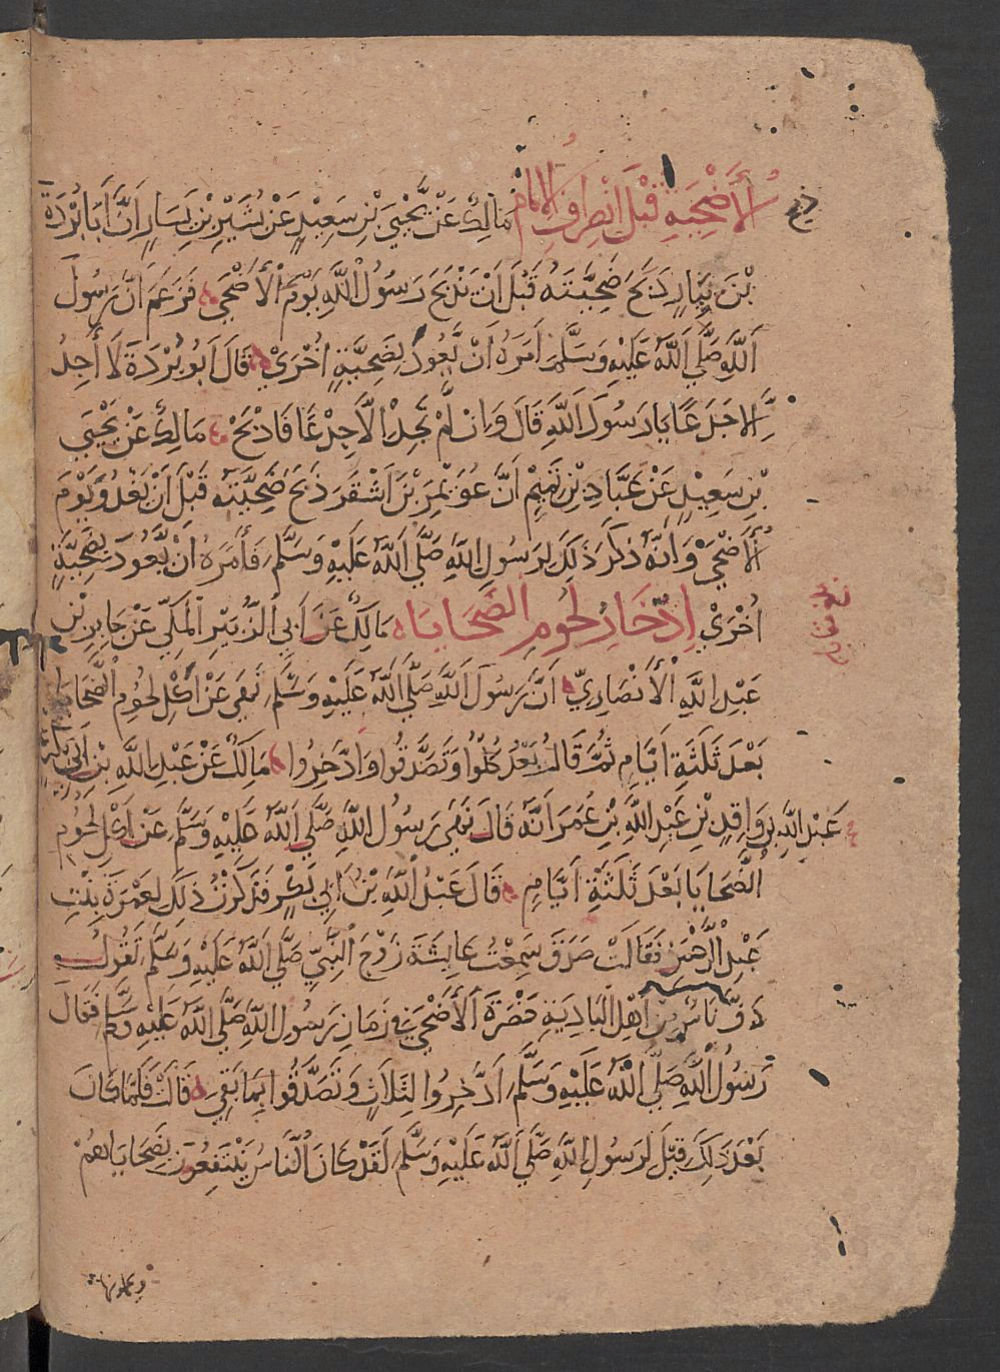 الأُضْحِيَةِ قَبْلَ انْصِرَافِ الإمَامِ مَالِكٌ عَنْ يَّحْيَي بْنِ سَعِيْدٍ عَنْ بُشَيْرِ بْنِ يَسَارٍ اَنَّ اَبَا بُرْدَةَ
بْنَ نِيَارٍ ذَبَحَ ضَحِيَّتَهُ قَبْلَ اَنْ يَذْبَحَ رَسُوْلُ اللَّهِ يَوْمَ الْأَضْحَي فَزَعَمَ اَنَّ رَسُولَ
اَللَّهِ صَلَّي اَللَّهُ عَلَيْهِ وَسَلَّمَ اَمَرَهُ اَنْ يَّعُودَ بِضَحِيَّةٍ اُخْرَيْ قَالَ اَبُو بُرْدَةَ لَا أَجِدُ
اِلَّا جَذَعًا يا رَسُولَ اَللَّهِ قَالَ وَاِنْ لَّمْ تَجِدْ اِلَّا جِذْعًا فَاذْبَحْ مَالِكٌ عَنْ يَحْيَي
بْنِ سَعِيْدٍ عَنْ عَبَّادِ بْنِ تَمِيْمٍ اَنَّ عُوَيْمِرَ بْنَ اَشْقَرَ ذَبَحَ ضَحِيَّتَهُ قَبْلَ اَنْ يَغْدُوَ يَوْمَ
اُلْأَضْحَيْ وَاَنَّهُ ذَكَرَ ذَلِكَ لِرَسُولِ اللهِ صَلَّي اَللَّهُ عَلَيْهِ وَسَلَّمَ فَأَمَرَهُ اَنْ يَّعُودَ بِضَحِيَّةٍ
اُخْرَيْ اِدِّخَارُ لُحُومِ الضَّحَايَا مَالِكٌ عَنْ اَبِي اَلزُّبَيْرِ اَلْمَكِّيِّ عَنْ جَابِرِ بْنِ
عَبْدِ اللَّهِ الْأَنْصَارِيِّ اَنَّ رَسُولَ اَللَّهِ صَلَّي اَللَّهُ عَلَيْهِ وَسَلَّمَ نَهَى عَنْ اَكْلِ لُحُومِ الضَّحَايَا
بَعْدَ ثَلَثَةِ اَيَّامٍ ثُمَّ قَالَ بَعْدُ كُلُوْا وَتَصَدَّقُوا وَادَّخِرُوا مَالِكٌ عَنْ عَبْدِ اللَّهِ بْنِ اَبِيْ بَكْرٍ
عَنْ عَبْدِ اللَّهِ بْنِ وَاقِدِ بْنِ عَبْدِ اللَّهِ بْنِ عُمَرَ اَنَّهُ قَالَ نَهَى رَسُولُ اللَّهِ صَلَّي اَللَّهُ عَلَيْهِ وَسَلَّمَ عَنْ اَكْلِ لُحُومِ
اُلضَّحَايَا بَعْدَ ثَلَثَةِ اَيَّامٍ قَالَ عَبْدُ اَللَّهِ بْنُ اَبِي بَكْرٍ فَذَكَرْتُ ذَلِكَ لِعَمْرَةَ بِنْتِ
عَبْدِ الرَّحْمَنِ فَقَالَتْ صَدَقَ سَمِعْتُ عَايِشَةَ زَوْجَ اَلنَّبِيِّ صَلَّي اَللَّهُ عَلَيْهِ وَسَلَّمَ تَقُولُ
دَفَّ نَاسٌ مِنْ اَهْلِ الْبَادِيَةِ حَضْرَةَ اَلْأَضْحَي فِي زَمَانِ رَسُولِ اللهِ صَلَّي اَللَّهُ عَلَيْهِ وَسَلَّمَ فَقَالَ
رَسُولُ اَللَّهِ صَلَّي اَللَّهُ عَلَيْهِ وَسَلَّمَ اَدَّخِرُوا لِثَلَاثٍ وَتَصَدَّقُوا بِمَا بَقِيَ قَالَتْ فَلَمَّا كَانَ
بَعْدَ ذَلِكَ قِيْلَ لِرَسُولِ اللهِ صَلَّي اَللَّهُ عَلَيْهِ وَسَلَّمَ لَقَدْ كَانَ اُلنَّاسُ يَنْتَفِعُونَ بِضَحَايَاهُمْ
ويحملون منها